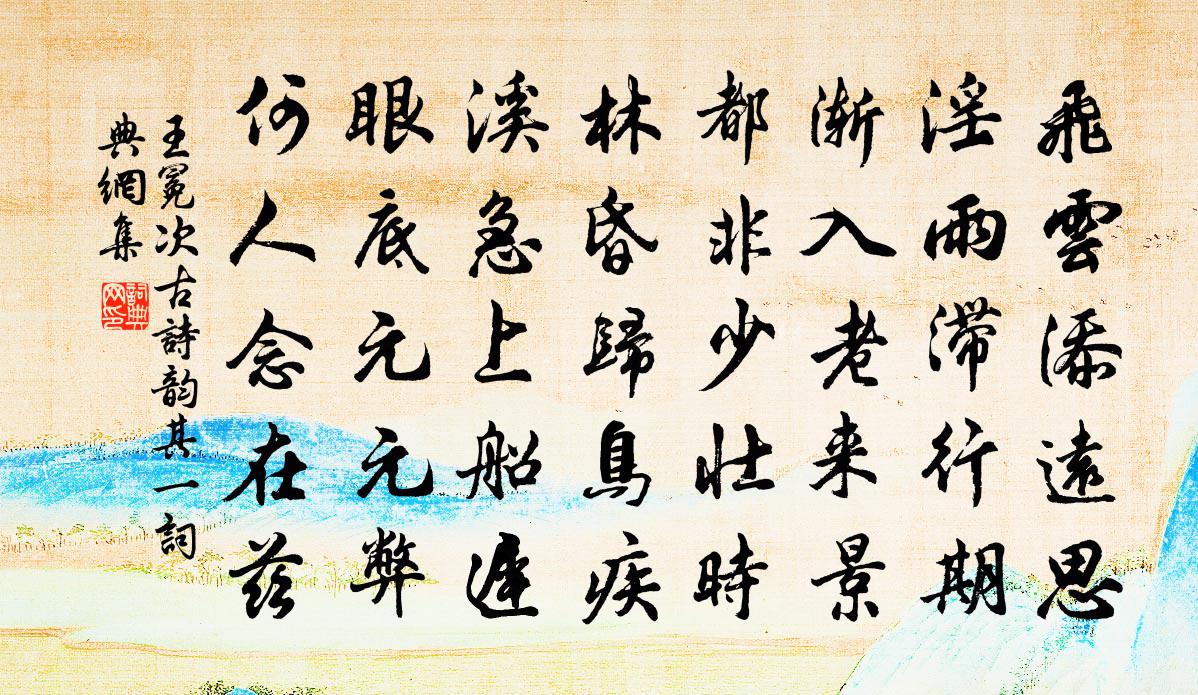 飛雲添遠思
淫雨滯行期
漸入老来景
都非少壯時
林昏歸鳥疾
溪急上船遲
眼底元元弊
何人念在茲
王冕次古詩韵其一詞
典網集
詞典
网印